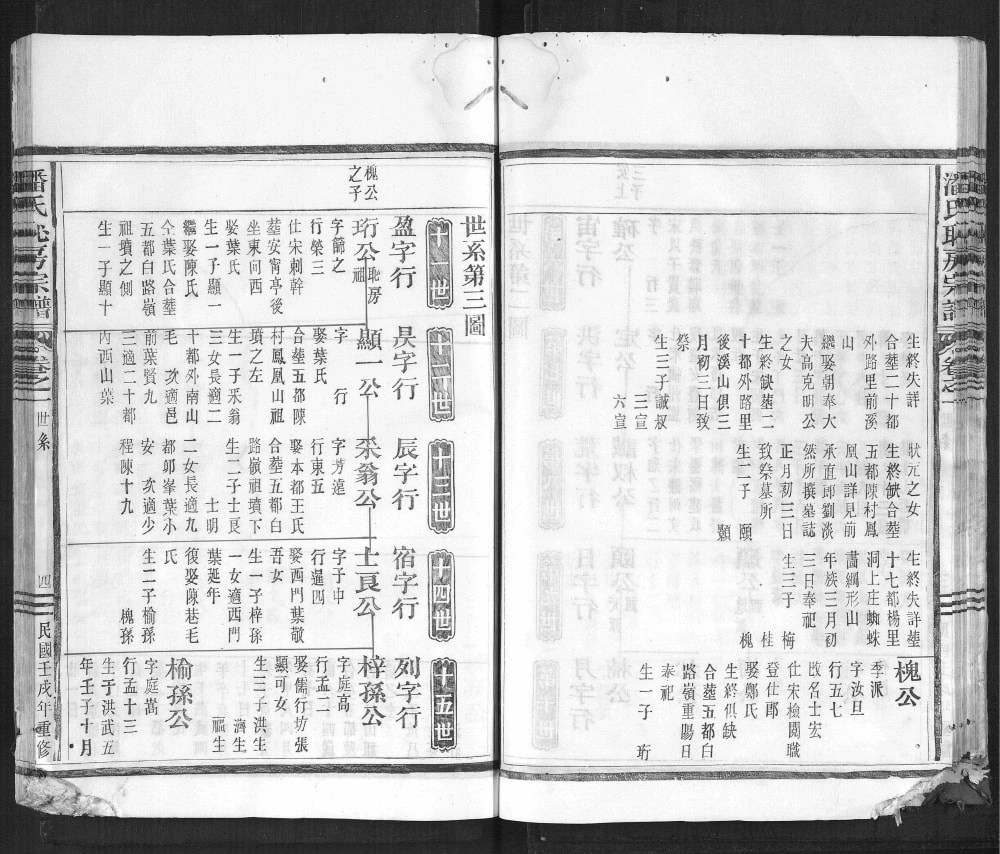 生終失詳
合塟二十都
外路里前溪
山
繼娶朝奉大
夫高克明公
之女
生終缺塟二
十都外路里
後溪山俱三
月初三日致
祭
生三子誠叔
三宣
六宣
狀元之女
生終缺合塟
五都陳村鳳
凰山詳見前
承直郎劉淡
然所撰墓誌
正月初三日
致祭墓所
生二子 頤
顥
生終失詳塟
十七都楊里
洞上庄蜘蛛
罥綱形山
年族三月初
三日奉祀
生三子 梅
桂
槐
槐公
季派
字汝旦
行五七
改名士宏
仕宋檢閱職
登仕郎
娶鄭氏
生終俱缺
合塟五都白
路嶺重賜日
奉祀
生一子 珩
世系第三圖
槐公
之子
十一世
盈字行
珩公 耽房祖
字節之
行榮三
仕宋刺幹
塟安宵亭後
坐東向西
娶葉氏
生一子顯一
繼娶陳氏
仝葉氏合塟
五都白路嶺
祖墳之側
生一子顯十
十二世
昃字行
顯一公
字 行
娶葉氏
合塟五都陳
村鳳凰山祖
墳之左
生一子采翁
三女長適二
十都外南山
毛 次適邑
前葉賢九
三適二十都
內西山葉
十三世
辰字行
采翁公
字芳遠
行東五
娶本都王氏
合塟五都白
路嶺祖墳下
生二子士良
士明
二女長適九
都卯峯葉小
安 次適少
程陳十九
十四世
宿字行
士良公
字子中
行暹四
娶西門葉敬
吾女
生一子梓孫
一女適西門
葉延年
復娶陳巷毛
氏
生二子榆孫
槐孫
十五世
列字行
梓孫公
字庭高
行孟二
娶儒行坊張
顯可女
生三子洪生
濟生
福生
榆孫公
字庭嵩
行孟十三
生于洪武五
年壬子十月
潘氏耽房宗譜
卷之一
世系
四
民國壬戌年重修